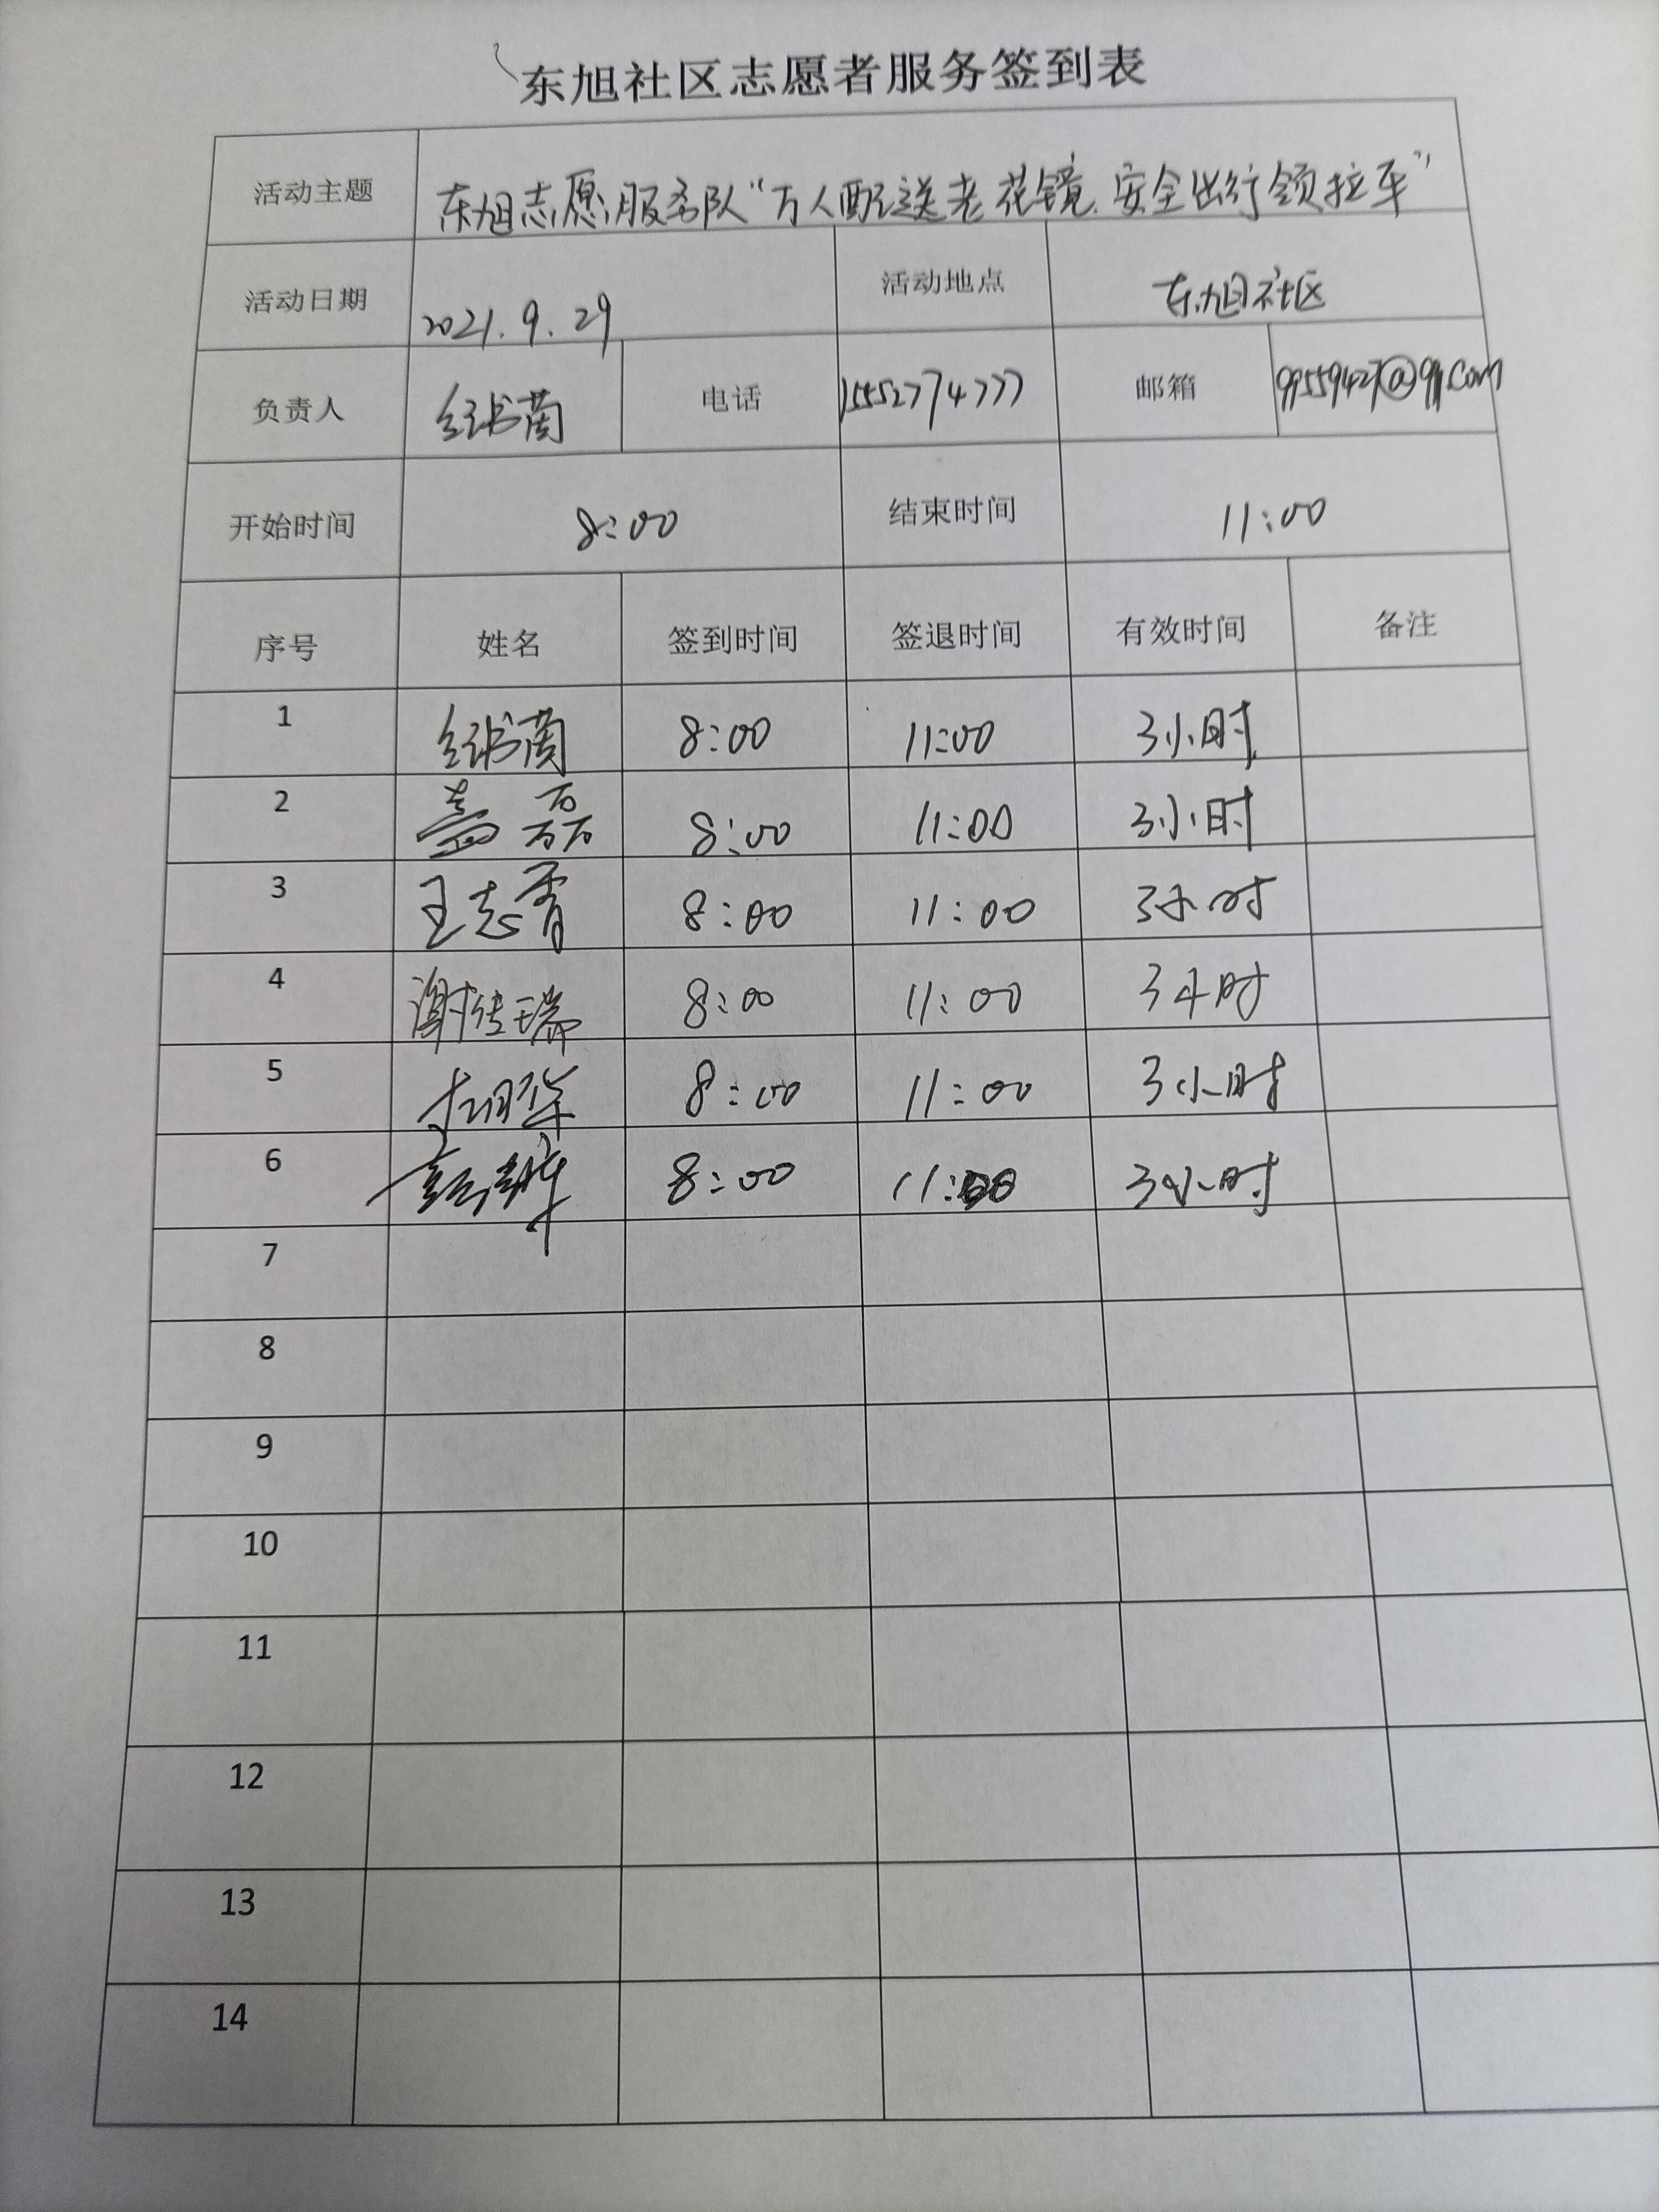 东旭社区志愿者服务签到表
活动主题 东旭志愿服务队“万人配送老花镜、安全出行领拉车”
活动日期 2021.9.29 活动地点 东旭社区
负责人 电话 15552774777 邮箱 99559427@qq.com
开始时间 8:00 结束时间 11:00
序号 姓名 签到时间 签退时间 有效时间 备注
1 8:00 11:00 3小时
2 8:00 11:00 3小时
3 王志霄 8:00 11:00 3小时
4 谢传瑞 8:00 11:00 3小时
5 8:00 11:00 3小时
6 8:00 11:00 3小时
7
8
9
10
11
12
13
14